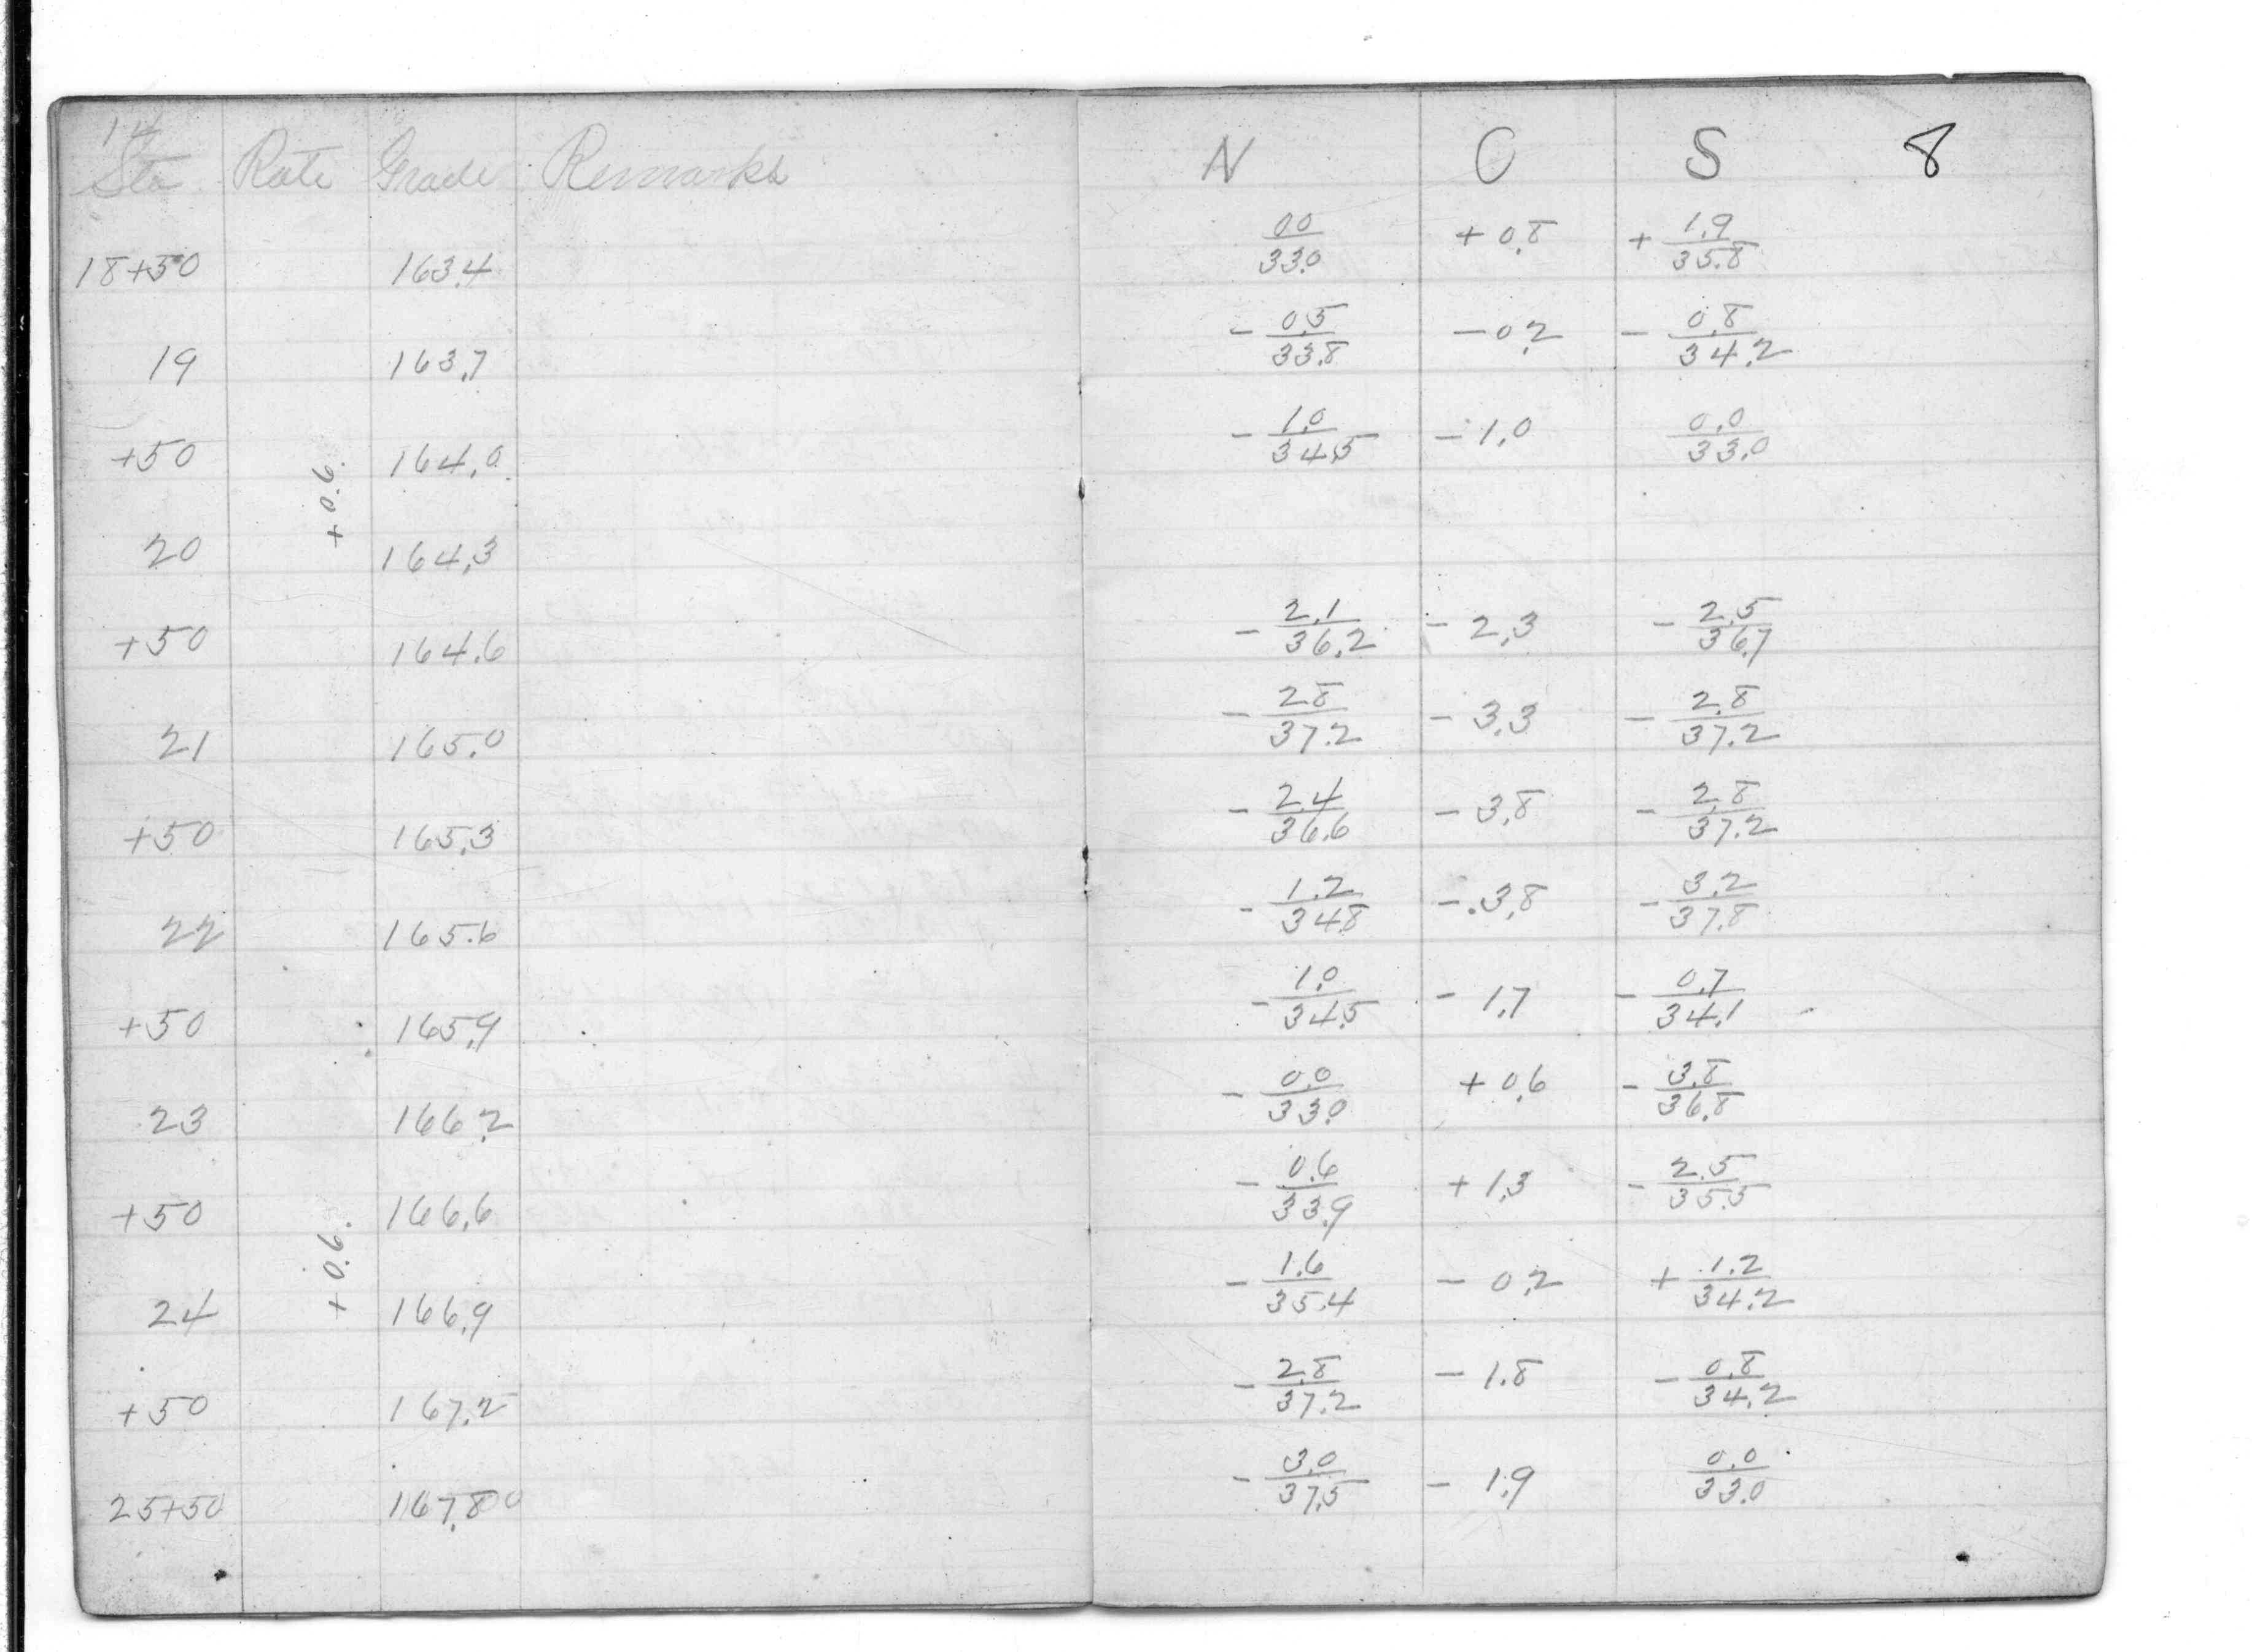 14
Sta Rate Grade Remarks N C S 8
18+50 163.4 00/33.0 +0.8 + 1.9/35.8
19 163.7 - 0.5/33.8 -0.2 - 0.8/34.2
+50 164.0 - 1.0/34.5 -1.0 0.0/33.0
+0.6.
20 164.3
+50 164.6 - 2.1/36.2 -2.3 - 2.5/36.7
21 165.0 - 2.8/37.2 -3.3 - 2.8/37.2
+50 165.3 - 2.4/36.6 -3.8 - 2.8/37.2
22 165.6 - 1.2/34.8 -.3.8 - 3.2/37.8
+50 165.9 - 1.0/34.5 -1.7 - 0.7/34.1
23 166.2 - 0.0/33.0 +0.6 - 3.8/36.8
+50 166.6 - 0.6/33.9 +1.3 - 2.5/35.5
+0.6.
24 166.9 - 1.6/35.4 -0.2 + 1.2/34.2
+50 167.2 - 2.8/37.2 -1.8 - 0.8/34.2
25+50 167.80 - 3.0/37.5 -1.9 0.0/33.0